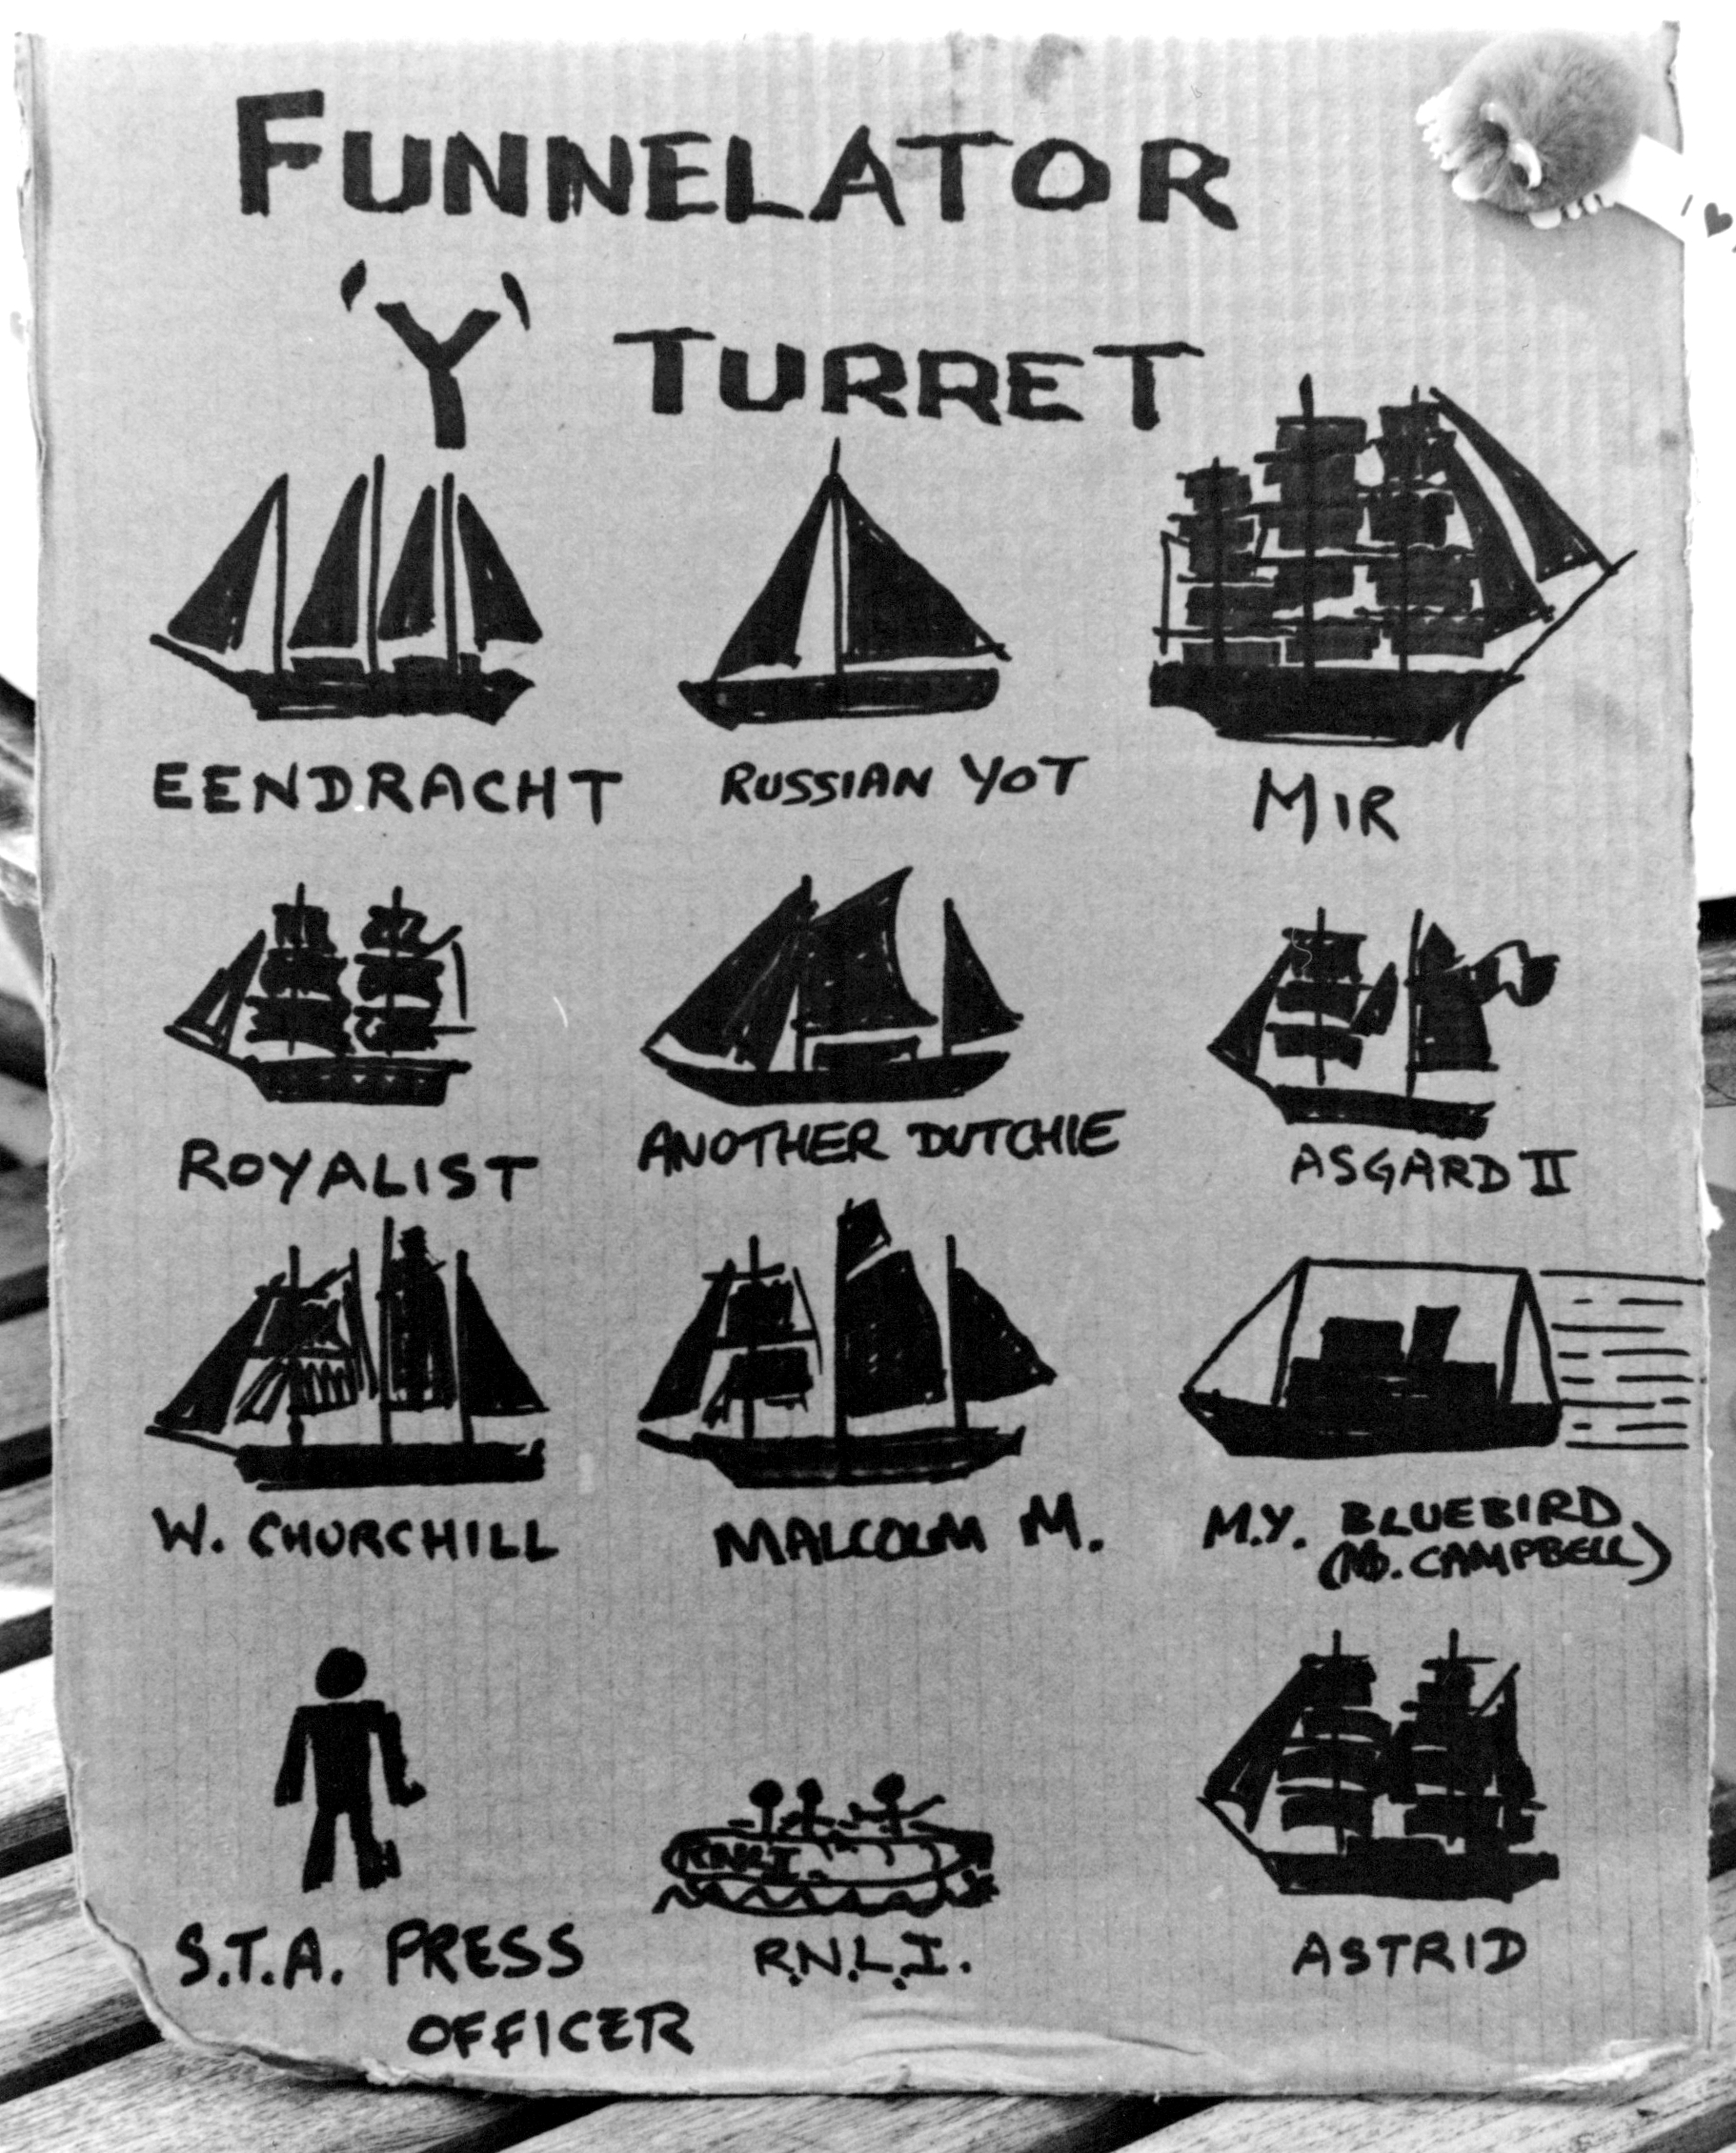 FUNNELATOR
'Y' TURRET
EENDRACHT
RUSSIAN YOT
MIR
ROYALIST
ANOTHER DUTCHIE
ASGARD II
W. CHURCHILL
MALCOLM M.
M.Y. BLUEBIRD
CAMPBELL)
S.T.A. PRESS
OFFICER
RNLI.
R.N.L.I.
ASTRID